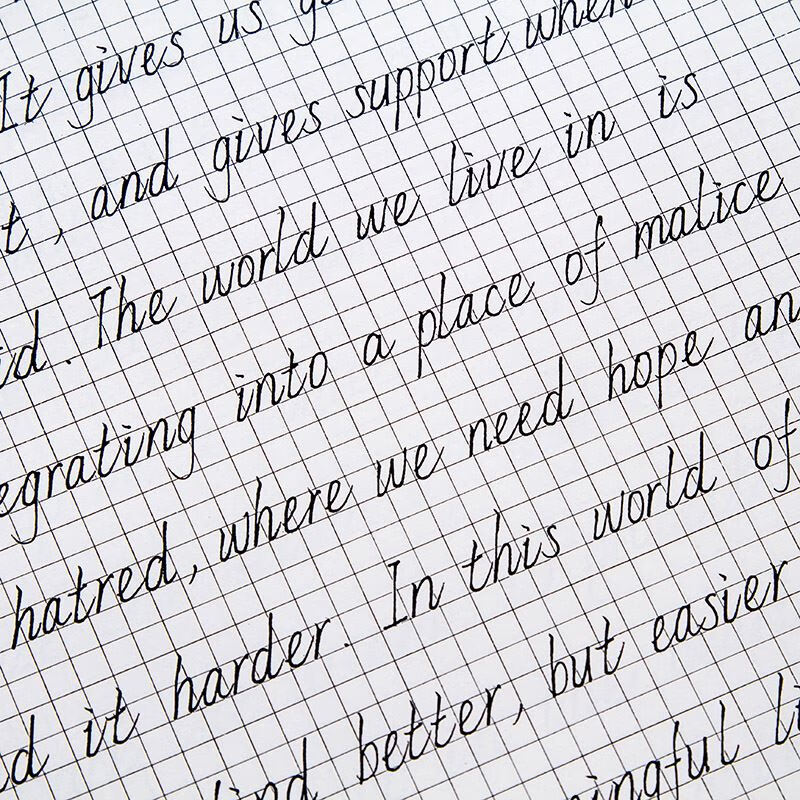 It gives us
, and gives support when
. The world we live in is
egrating into a place of malice
hatred, where we need hope an
it harder. In this world of
better, but easier
ingful li